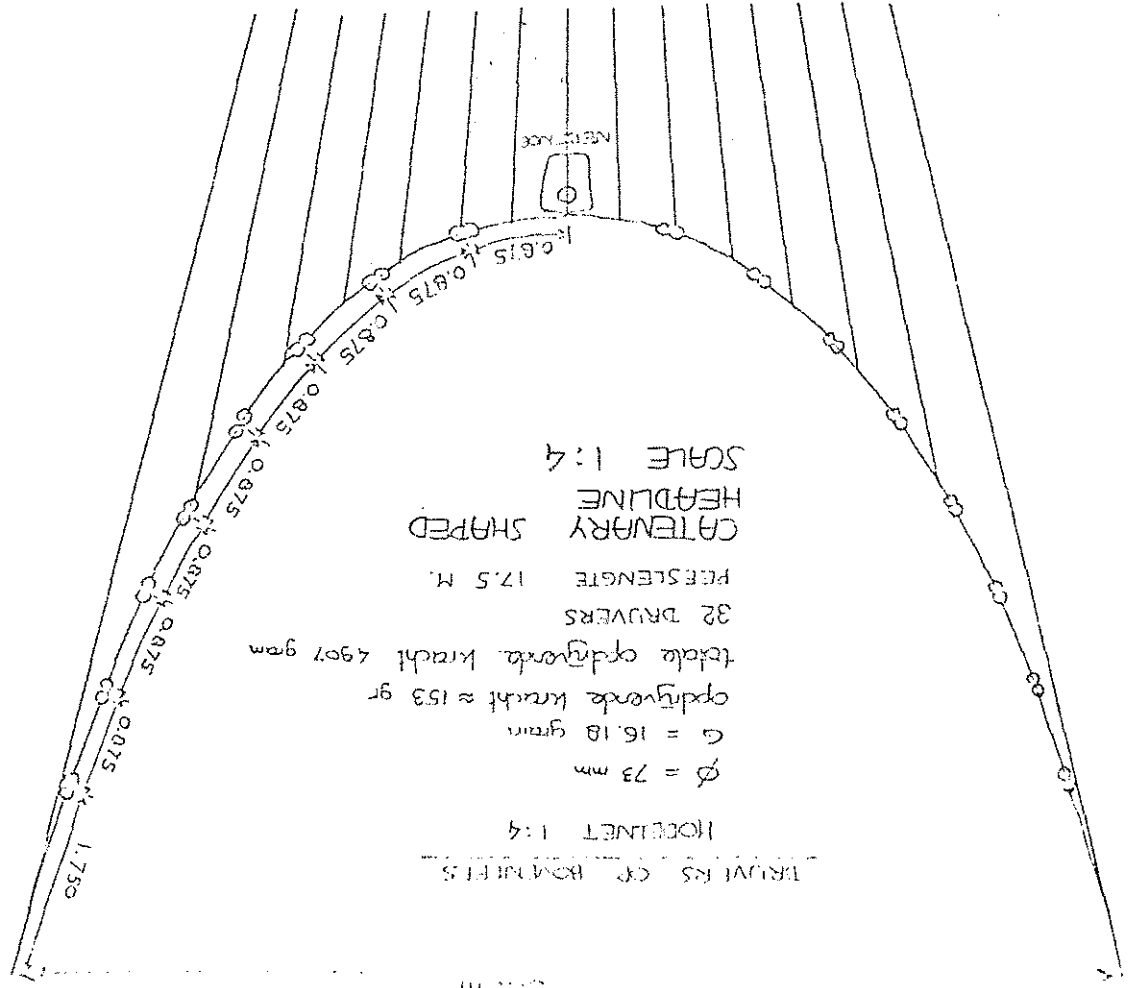 DRIJVERS OP BOVENPEES
MODELNET 1:4
Ø = 73 mm
G = 16.18 gram
opdrijvende kracht ≈ 153 gr
totale opdrijvende kracht 4907 gram
32 DRIJVERS
PEESLENGTE 17.5 M.
CATENARY SHAPED
HEADLINE
SCALE 1:4
1.750
0.875
0.875
0.875
0.875
0.875
0.875
0.875
0.875